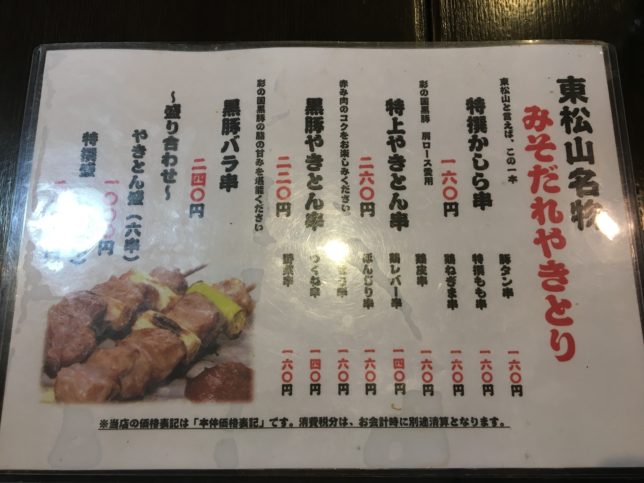 東松山名物
みそだれやきとり
東松山と言えば、この一本
特撰かしら串
一六〇円
彩の国黒豚 肩ロース使用
特上やきとん串
二六〇円
赤み肉のコクをお楽しみください
黒豚やきとん串
二二〇円
彩の国黒豚の脂の甘みを堪能ください
黒豚バラ串
二四〇円
～盛り合わせ～
やきとん盛（六串）
一〇〇〇円
特撰盛
豚タン串
一六〇円
特撰もも串
一六〇円
鶏ねぎま串
一六〇円
鶏皮串
一六〇円
鶏レバー串
一四〇円
ぼんじり串
一六〇円
一六〇円
つくね串
一四〇円
野菜串
一六〇円
※当店の価格表記は「本体価格表記」です。消費税分は、お会計時に別途清算となります。